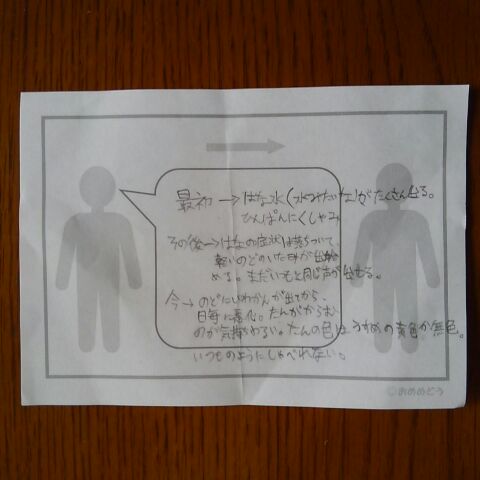 最初→はな水(水みたいな)がたくさん出る。
ひんぱんにくしゃみ
その後→はなの症状は落ちついて、
軽いのどのいたみが出始
める。まだいつもと同じ声が出せる。
今→のどにいわかんが出てから、
日毎に悪化。たんがからむ
のが気持ちわるい。たんの色は、うすめの黄色か無色。
いつものようにしゃべれない。
©おめめどう